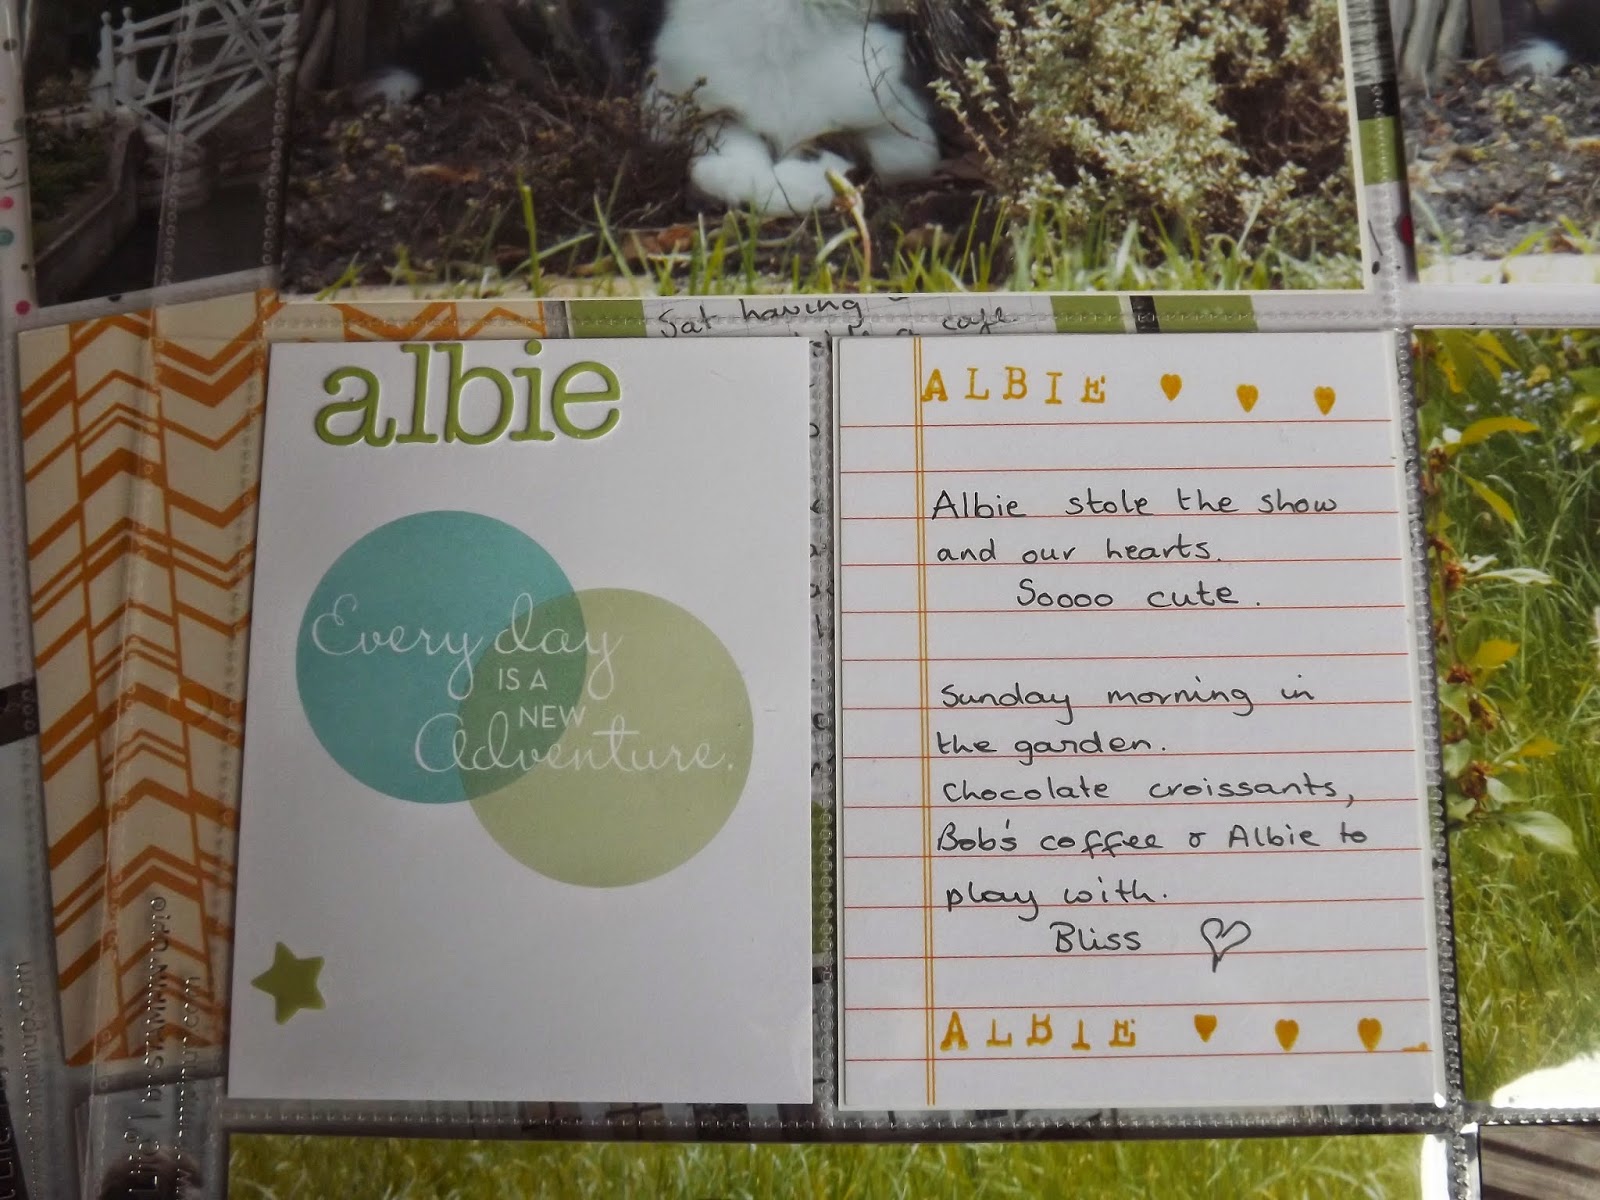 Sat having
a cafe.
albie
Every day
IS A
NEW
Adventure.
ALBIE
Albie stole the show
and our hearts.
Soooo cute.
Sunday morning in
the garden.
Chocolate croissants,
Bob's coffee & Albie to
play with.
Bliss
ALBIE
by STAMPIN' UP!®